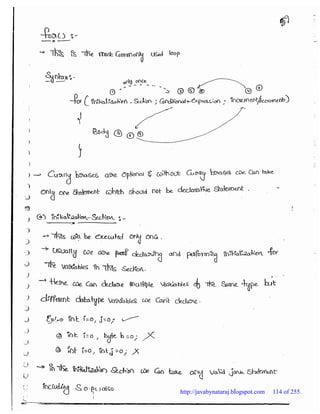 for() :-
→ This is the most commonly used loop
Syntax:-
only once
① ② ⑤ ⑧ ④ ⑦
for ( initialization - section ; conditional-expression ; increment/decrement)
{
Body ③ ⑥ ⑨
}
→ Curly braces are optional & without curly braces we can take
only one statement which should not be declarative statement.
(a) initialization-Section :-
→ This will be executed only once.
→ Usually we are declaring and performing initialization for
the variables in this section.
→ Here we can declare multiple variables of the same type but
different datatype variables we can't declare.
Ex:- ① int i=0, j=0; ✓
② int i=0, byte b=0; X
③ int i=0, int j=0; X
→ In the initialization section we can take any valid java statement
including S.o.pl() also
http://javabynataraj.blogspot.com 114 of 255.